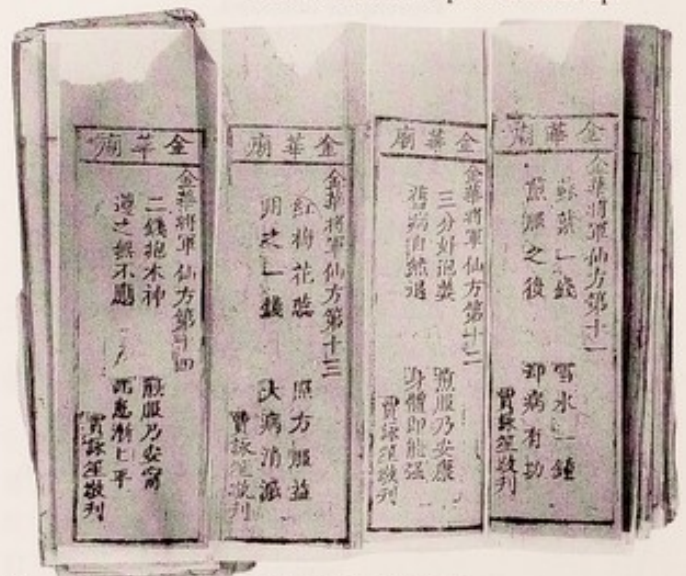 金華廟
金華將軍仙方第十一
蘇葉一錢 雪水一鍾
煎服之後 卻病有功
賈詠笙敬刊
金華廟
金華將軍仙方第十二
三分好泡 煎服乃安康
舊病自然退 身體即能强
賈詠笙敬刊
金華廟
金華將軍仙方第十三
紅梅花蕊 照方服益
用之一錢 大病消滅
賈詠笙敬刊
金華廟
金華將軍仙方第十四
二錢抱木神 煎服乃安甯
遵之無不應 患漸匕平
賈詠笙敬刊